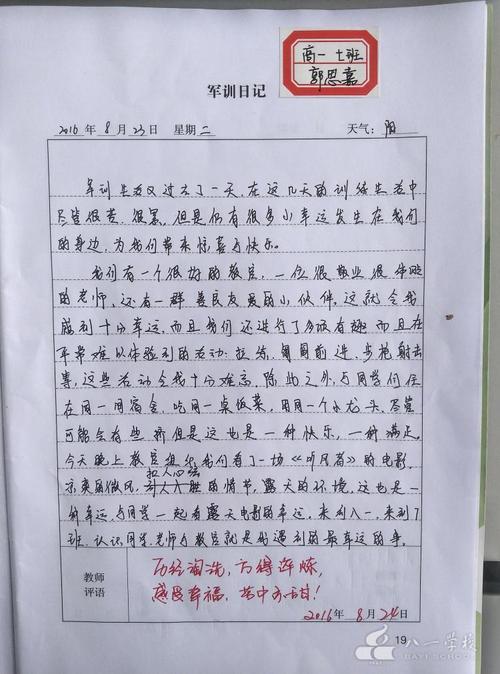 高一 七班
郭思嘉
军训日记
2016 年 8 月 23 日 星期 二 天气: 阴
军训生活又过去了一天,在这几天的训练生活中
尽管很苦、很累,但是仍有很多小幸运发生在我们
的身边,为我们带来惊喜与快乐。
我们有一个很好的教官,一位很敬业很
的老师,还有一群善良友爱的小伙伴,这就令我
感到十分幸运,而且我们还进行了多项有趣而且在
平常难以体验到的活动:拉练、匍匐前进、步枪射击
等,这些活动令我十分难忘,除此之外,与同学们住
在同一间宿舍,吃同一桌饭菜,用同一个水龙头,尽管
可能会有些 但是这也是一种快乐,一种满足。
今天晚上教官组织我们看了一场《听风者》的电影,
凉爽的微风,扣人心弦的情节,露天的环境,这也是一
种幸运,与同学一起看露天电影的幸运,来到八一,来到7
班,认识同学、老师与教官就是我遇到的最幸运的事。
教师
评语
历经淘洗,方得淬炼,
感受幸福,苦中亦甜!
2016 年 8 月 24 日
19
八一学校
BAYI SCHOOL